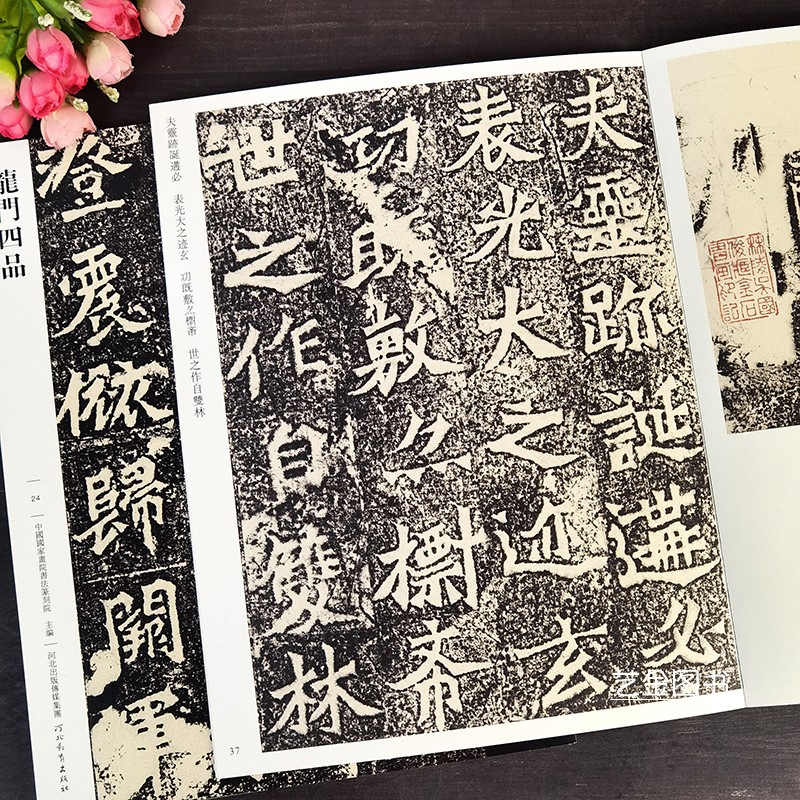 夫靈跡誕遘必
表光大之迹玄
功既敷亦㯹希
世之作自雙林
夫靈跡誕遘必 表光大之迹玄 功既敷亦㯹希 世之作自雙林
37
龍門四品
24
中國國家畫院書法篆刻院 主編
河北出版傳媒集團 河北教育出版社
震依歸
图书